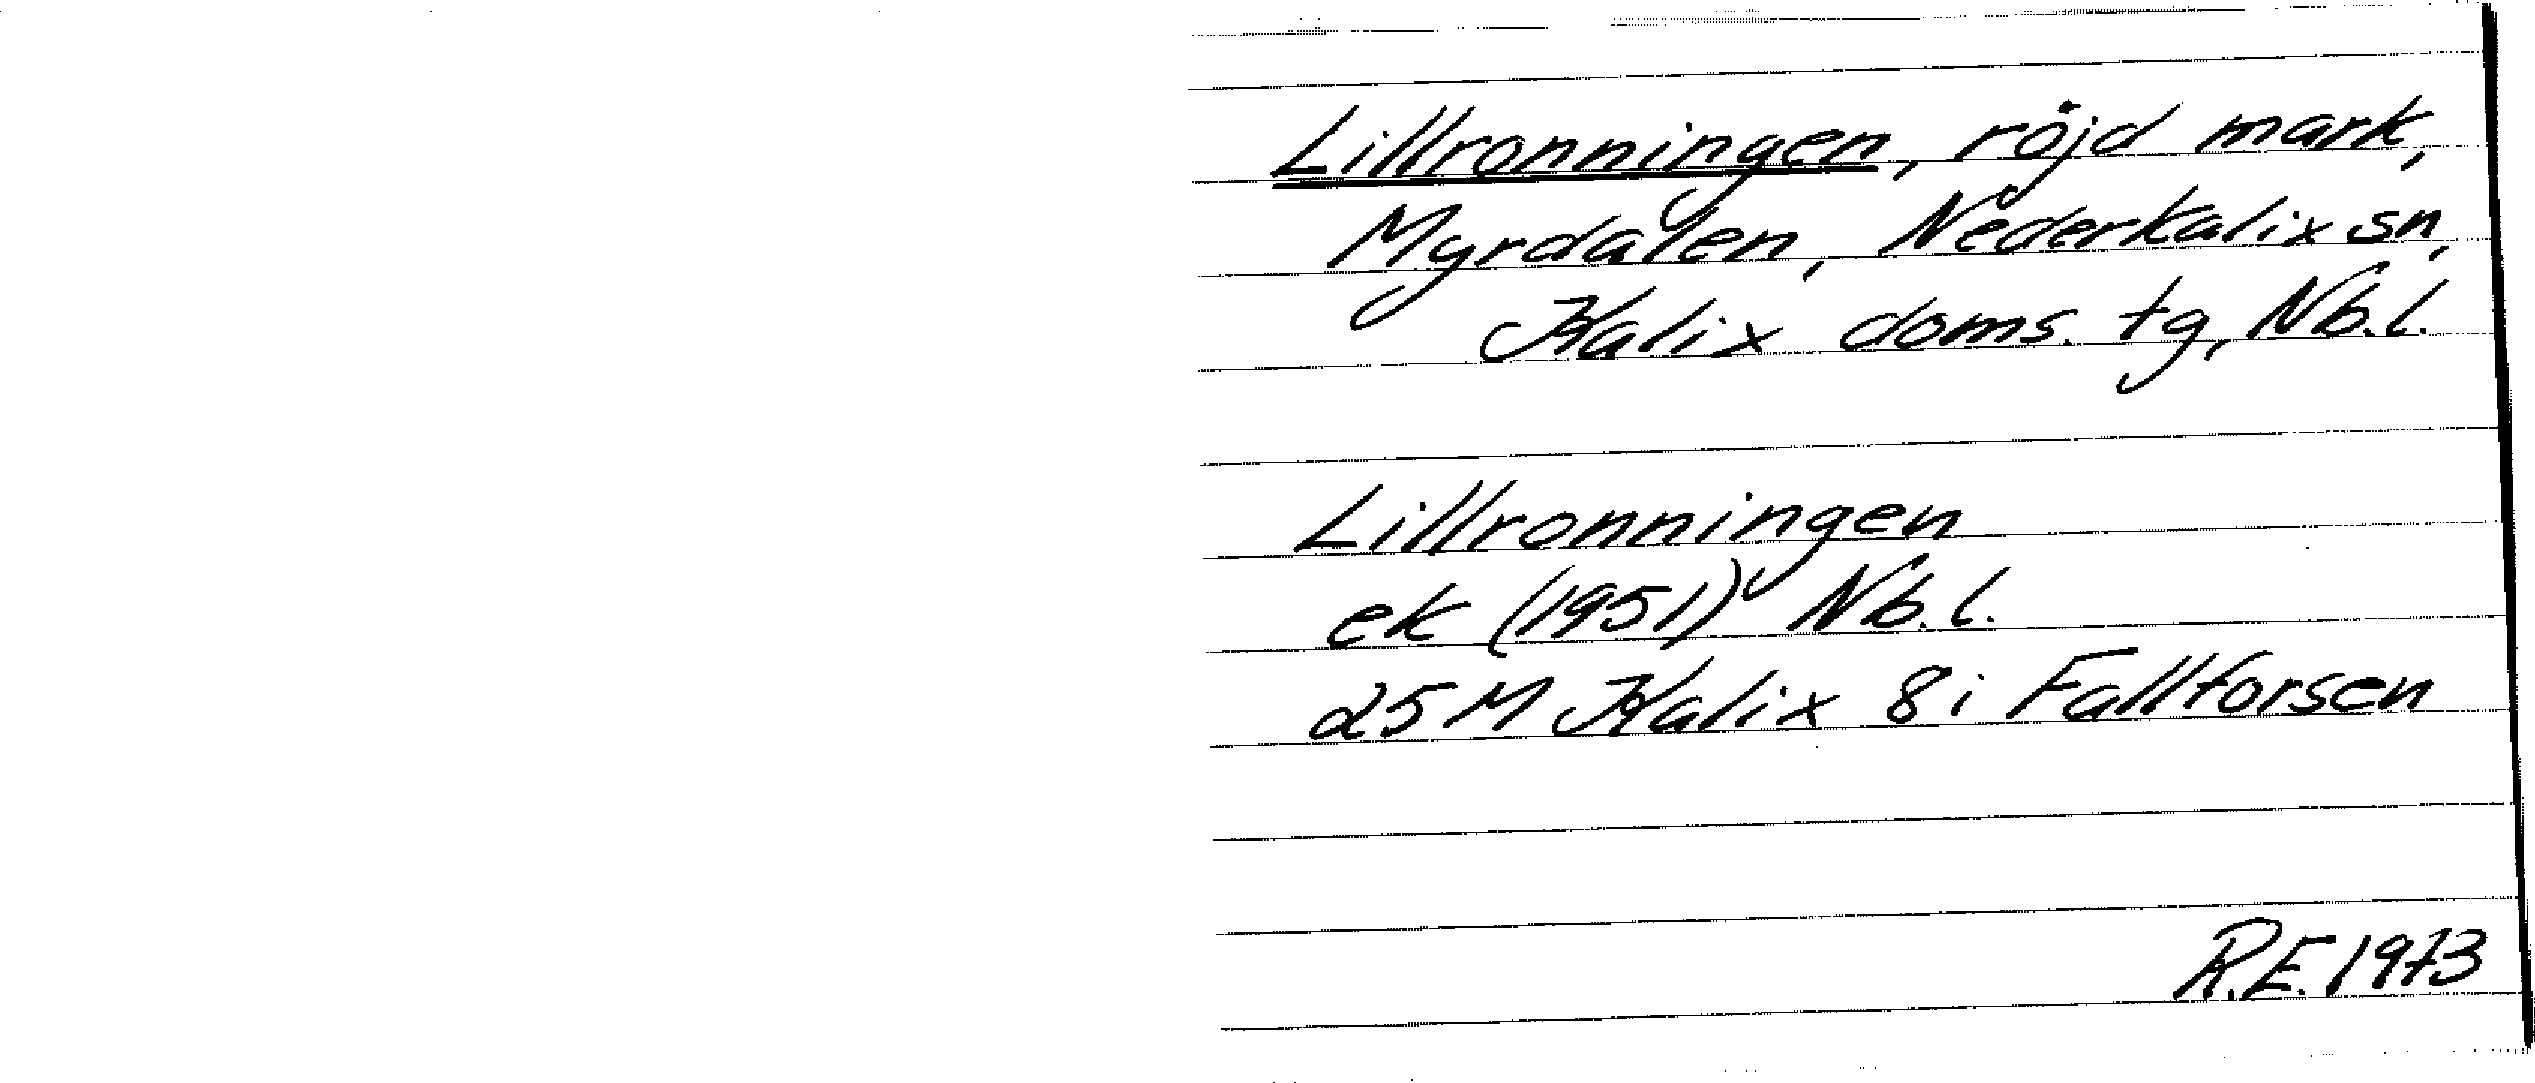 Lillronningen, röjd mark,
Myrdalen, Nederkalix sn,
Kalix doms. tg, Nb.l.
Lillronningen
ek (1951) Nb.l.
25 M Kalix 8i Fallforsen
R.E. 1973